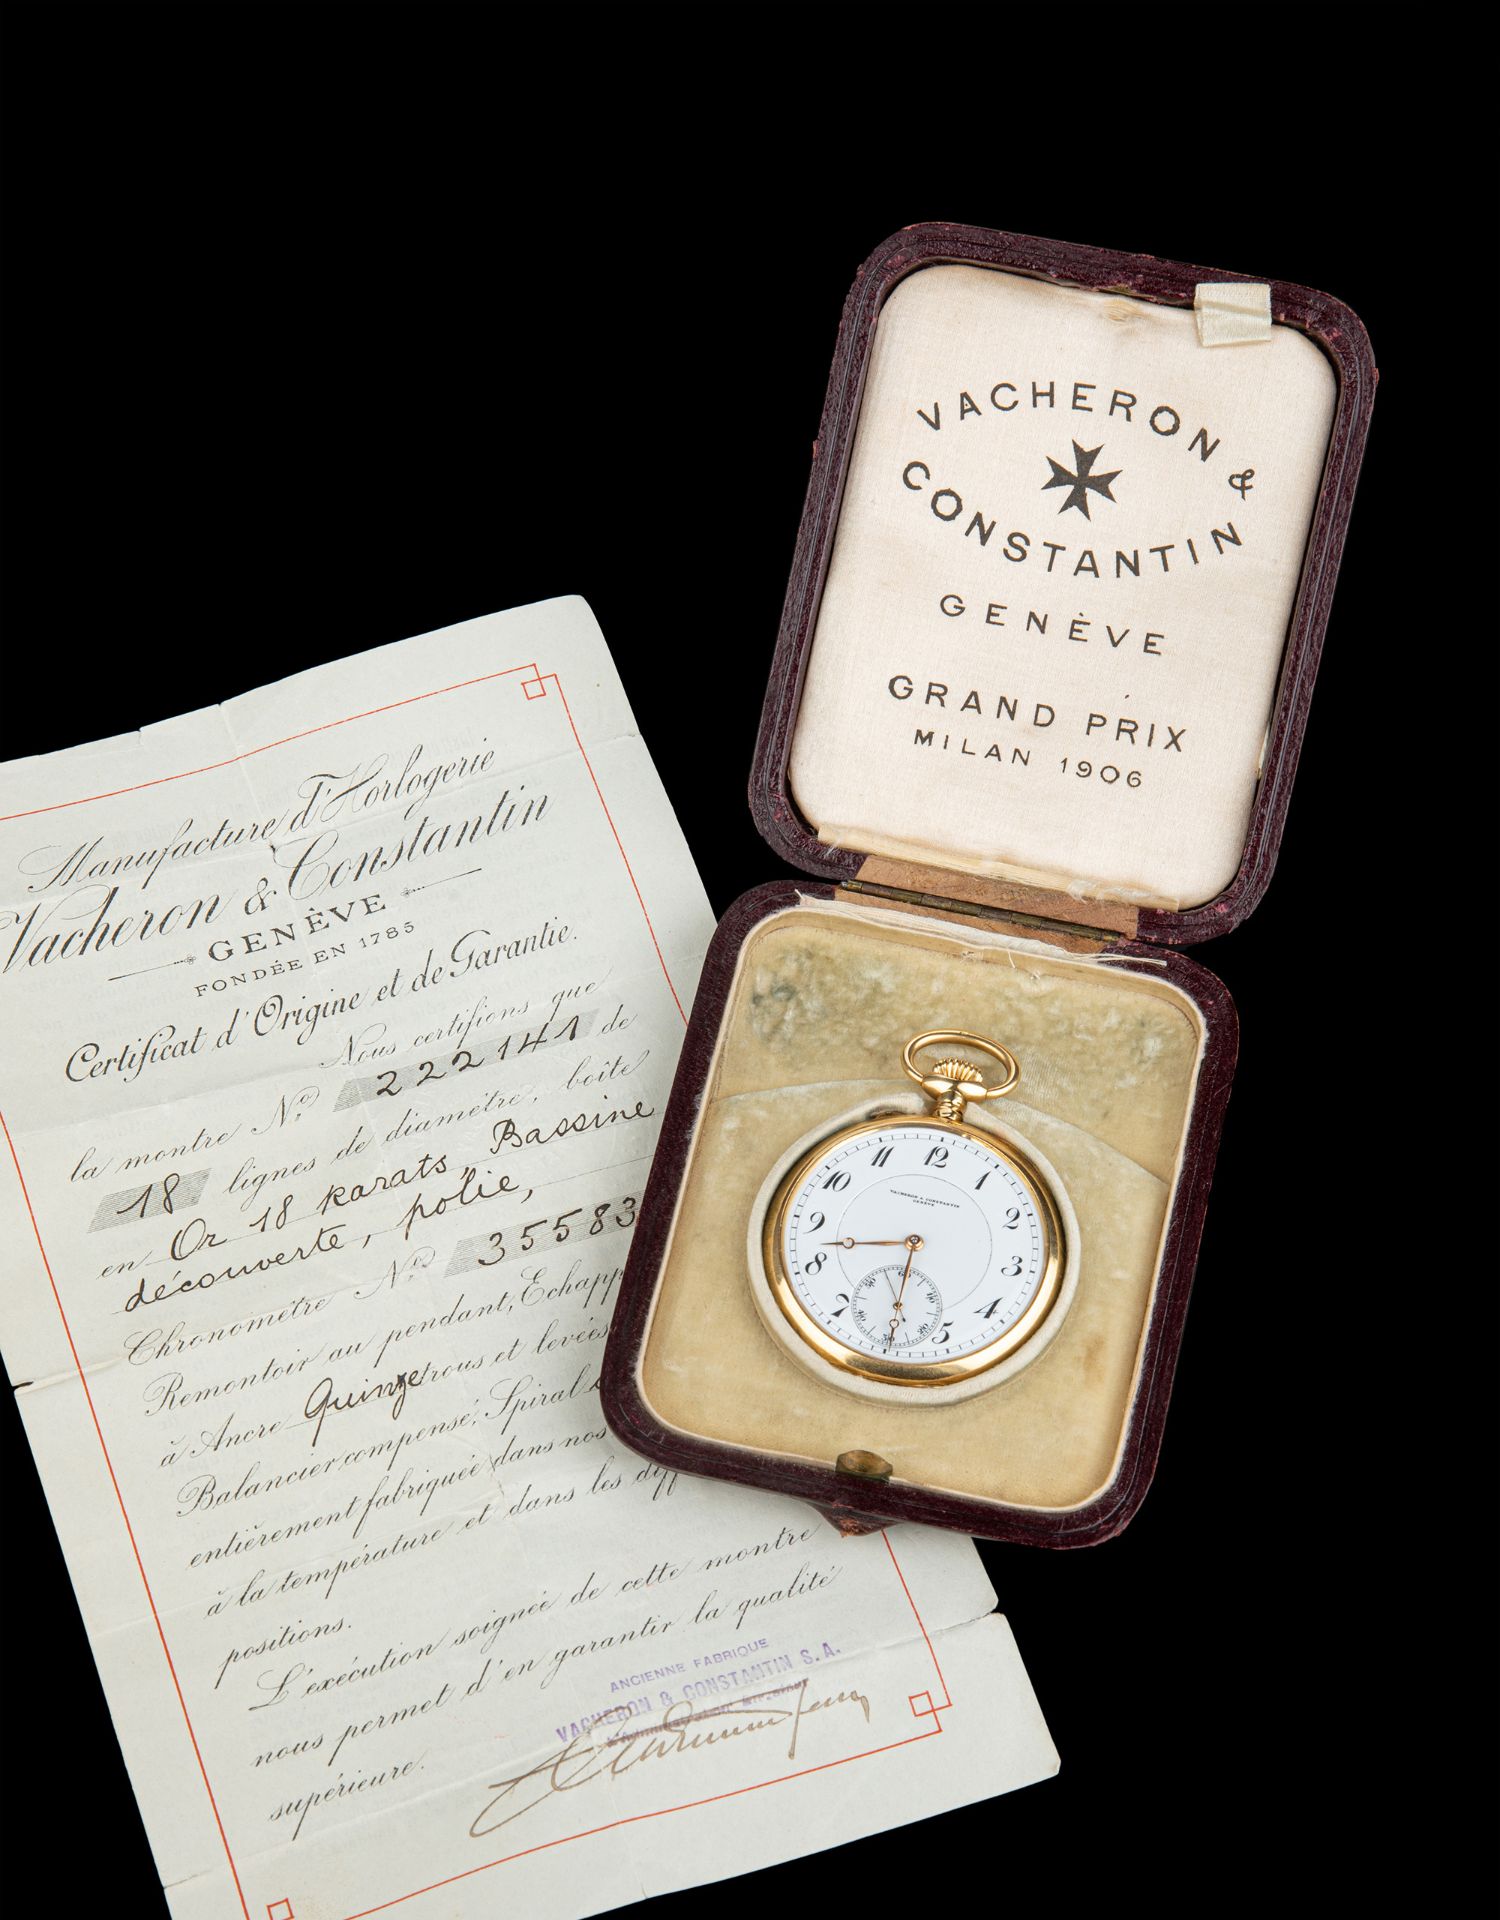 Manufacture d'Horlogerie
Vacheron & Constantin
GENÈVE
FONDÉE EN 1785
Certificat d'Origine et de Garantie.
Nous certifions que
la montre No 222141 de
18 lignes de diamètre, boîte
en Or 18 karats, Bassine
découverte, polie,
Chronomètre No 35583
Remontoir au pendant, Echapp
à Ancre Quinze trous et levées
Balancier compensé, Spiral
entièrement fabriquée dans nos
à la température et dans les
positions.
L'exécution soignée de cette montre
nous permet d'en garantir la qualité
supérieure.
ANCIENNE FABRIQUE
VACHERON & CONSTANTIN S.A.
VACHERON &
CONSTANTIN
GENÈVE
GRAND PRIX
MILAN 1906
12
1
2
3
4
5
7
8
9
10
11
VACHERON & CONSTANTIN
GENÈVE
60
10
20
30
40
50